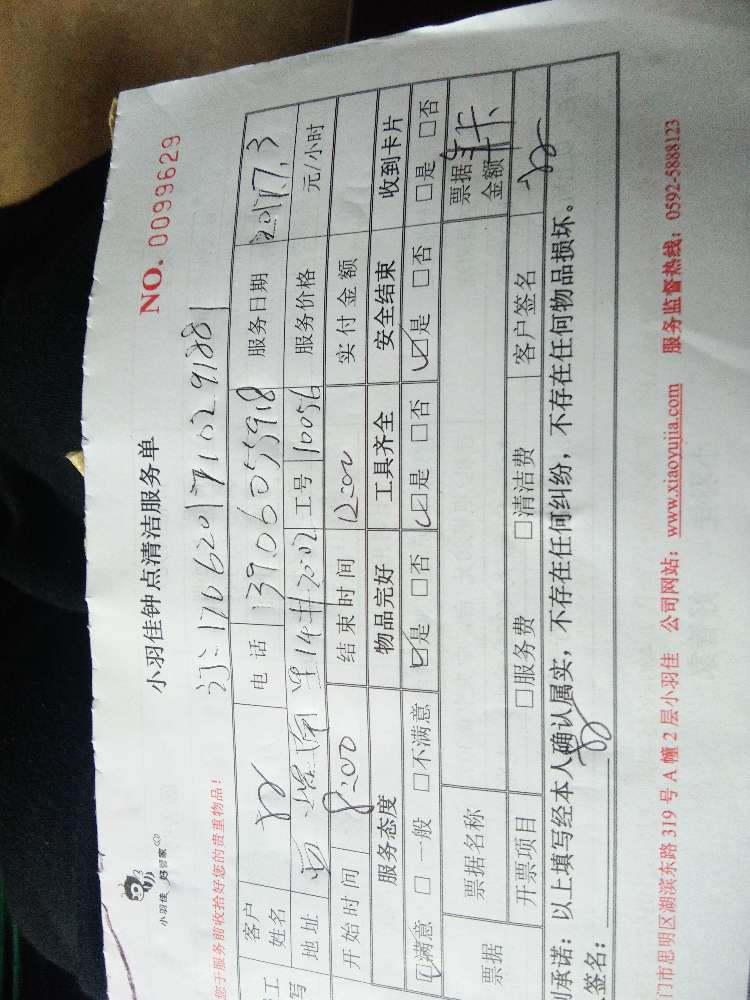 小羽佳 好管家
小羽佳钟点清洁服务单
NO. 0099629
您于服务前收拾好您的贵重物品!
客户姓名 电话 13906055918 服务日期 2017.7.3
地址 14#2002 工号 10056 服务价格 元/小时
开始时间 8:00 结束时间 12:00 实付金额
服务态度 物品完好 工具齐全 安全结束 收到卡片
☑满意 □一般 □不满意 ☑是 □否 ☑是 □否 ☑是 □否 □是 □否
票据 票据名称 票据金额
开票项目 □服务费 □清洁费 客户签名
承诺: 以上填写经本人确认属实, 不存在任何纠纷, 不存在任何物品损坏。
签名:
门市思明区湖滨东路 319 号 A 幢 2 层小羽佳 公司网站: www.xiaoyujia.com 服务监督热线: 0592-5888123